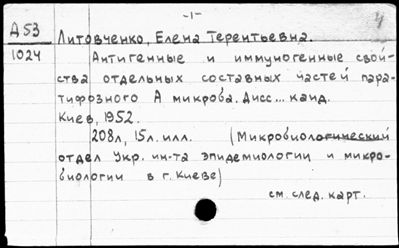 -1-
Д53
1024
Литовченко, Елена Терентьевна.
Антигенные и иммуногенные свой-
ства отдельных составных частей пара-
тифозного А микроба. Дисс... канд.
Киев, 1952.
208л, 15л. илл. (Микробиологический
отдел Укр. ин-та эпидемиологии и микро-
биологии в г. Киеве)
см. след. карт.